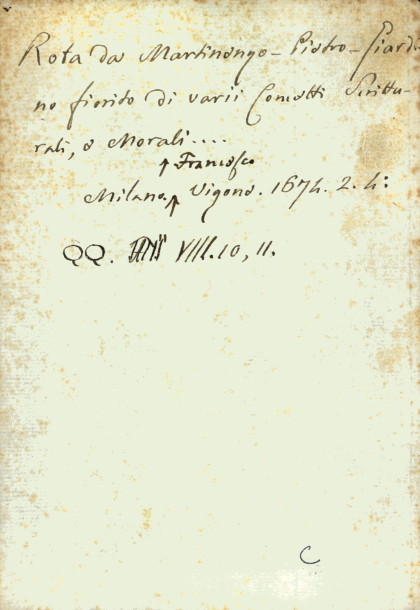 Rota da Martinengo - Pietro - Giardi-
no fiorito di varii Concetti Scrittu-
rali, e Morali....
Francesco
Milano. Vigone. 1674. 2. 4:
QQ. VIII. 10, 11.
C